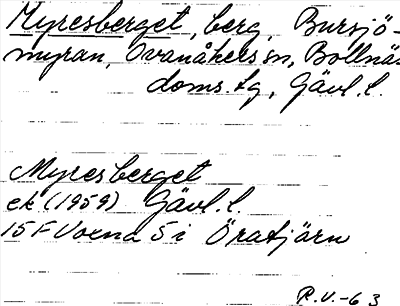 Myresberget, berg, Bursjö-
myran, Ovanåkers sn, Bollnäs
doms. tg, Gävl. l.
Myresberget
ek (1959) Gävl. l.
15F Voxna 5 i Öratjärn
R.V.-63